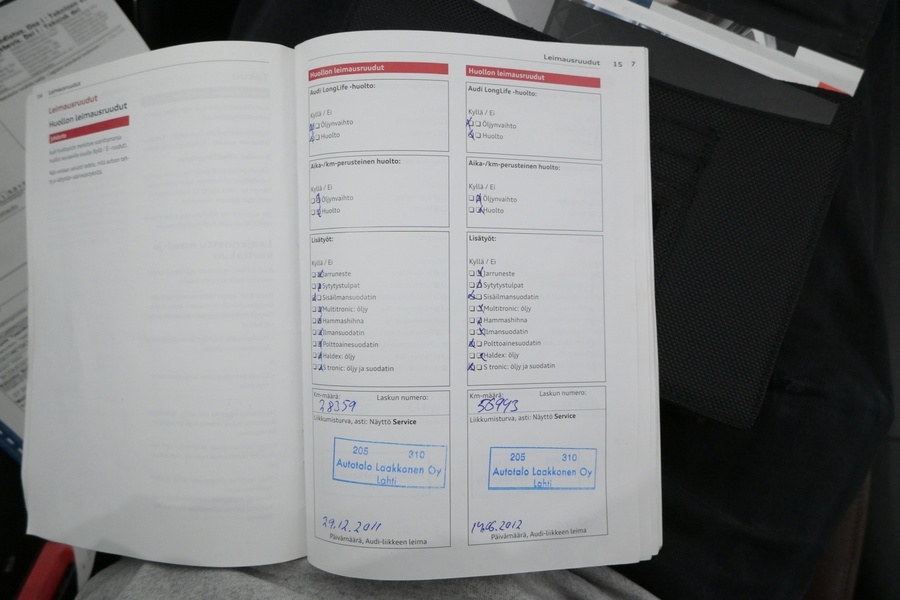 Leimausruudut
Leimausruudut
Huollon leimausruudut
Leimausruudut 15
Huollon leimausruudut
Audi LongLife -huolto:
Kyllä / Ei
Öljynvaihto
Huolto
Aika-/km-perusteinen huolto:
Kyllä / Ei
Öljynvaihto
Huolto
Lisätyöt:
Kyllä / Ei
Jarruneste
Sytytystulpat
Sisäilmansuodatin
Multitronic: öljy
Hammashihna
Ilmansuodatin
Polttoainesuodatin
Haldex: öljy
S tronic: öljy ja suodatin
Km-määrä: Laskun numero:
28359
Liikkumisturva, asti: Näyttö Service
205 310
Autotalo Laakkonen Oy
Lahti
29.12.2011
Päivämäärä, Audi-liikkeen leima
Huollon leimausruudut
Audi LongLife -huolto:
Kyllä / Ei
Öljynvaihto
Huolto
Aika-/km-perusteinen huolto:
Kyllä / Ei
Öljynvaihto
Huolto
Lisätyöt:
Kyllä / Ei
Jarruneste
Sytytystulpat
Sisäilmansuodatin
Multitronic: öljy
Hammashihna
Ilmansuodatin
Polttoainesuodatin
Haldex: öljy
S tronic: öljy ja suodatin
Km-määrä: Laskun numero:
Liikkumisturva, asti: Näyttö Service
205 310
Autotalo Laakkonen Oy
Lahti
14.06.2012
Päivämäärä, Audi-liikkeen leima